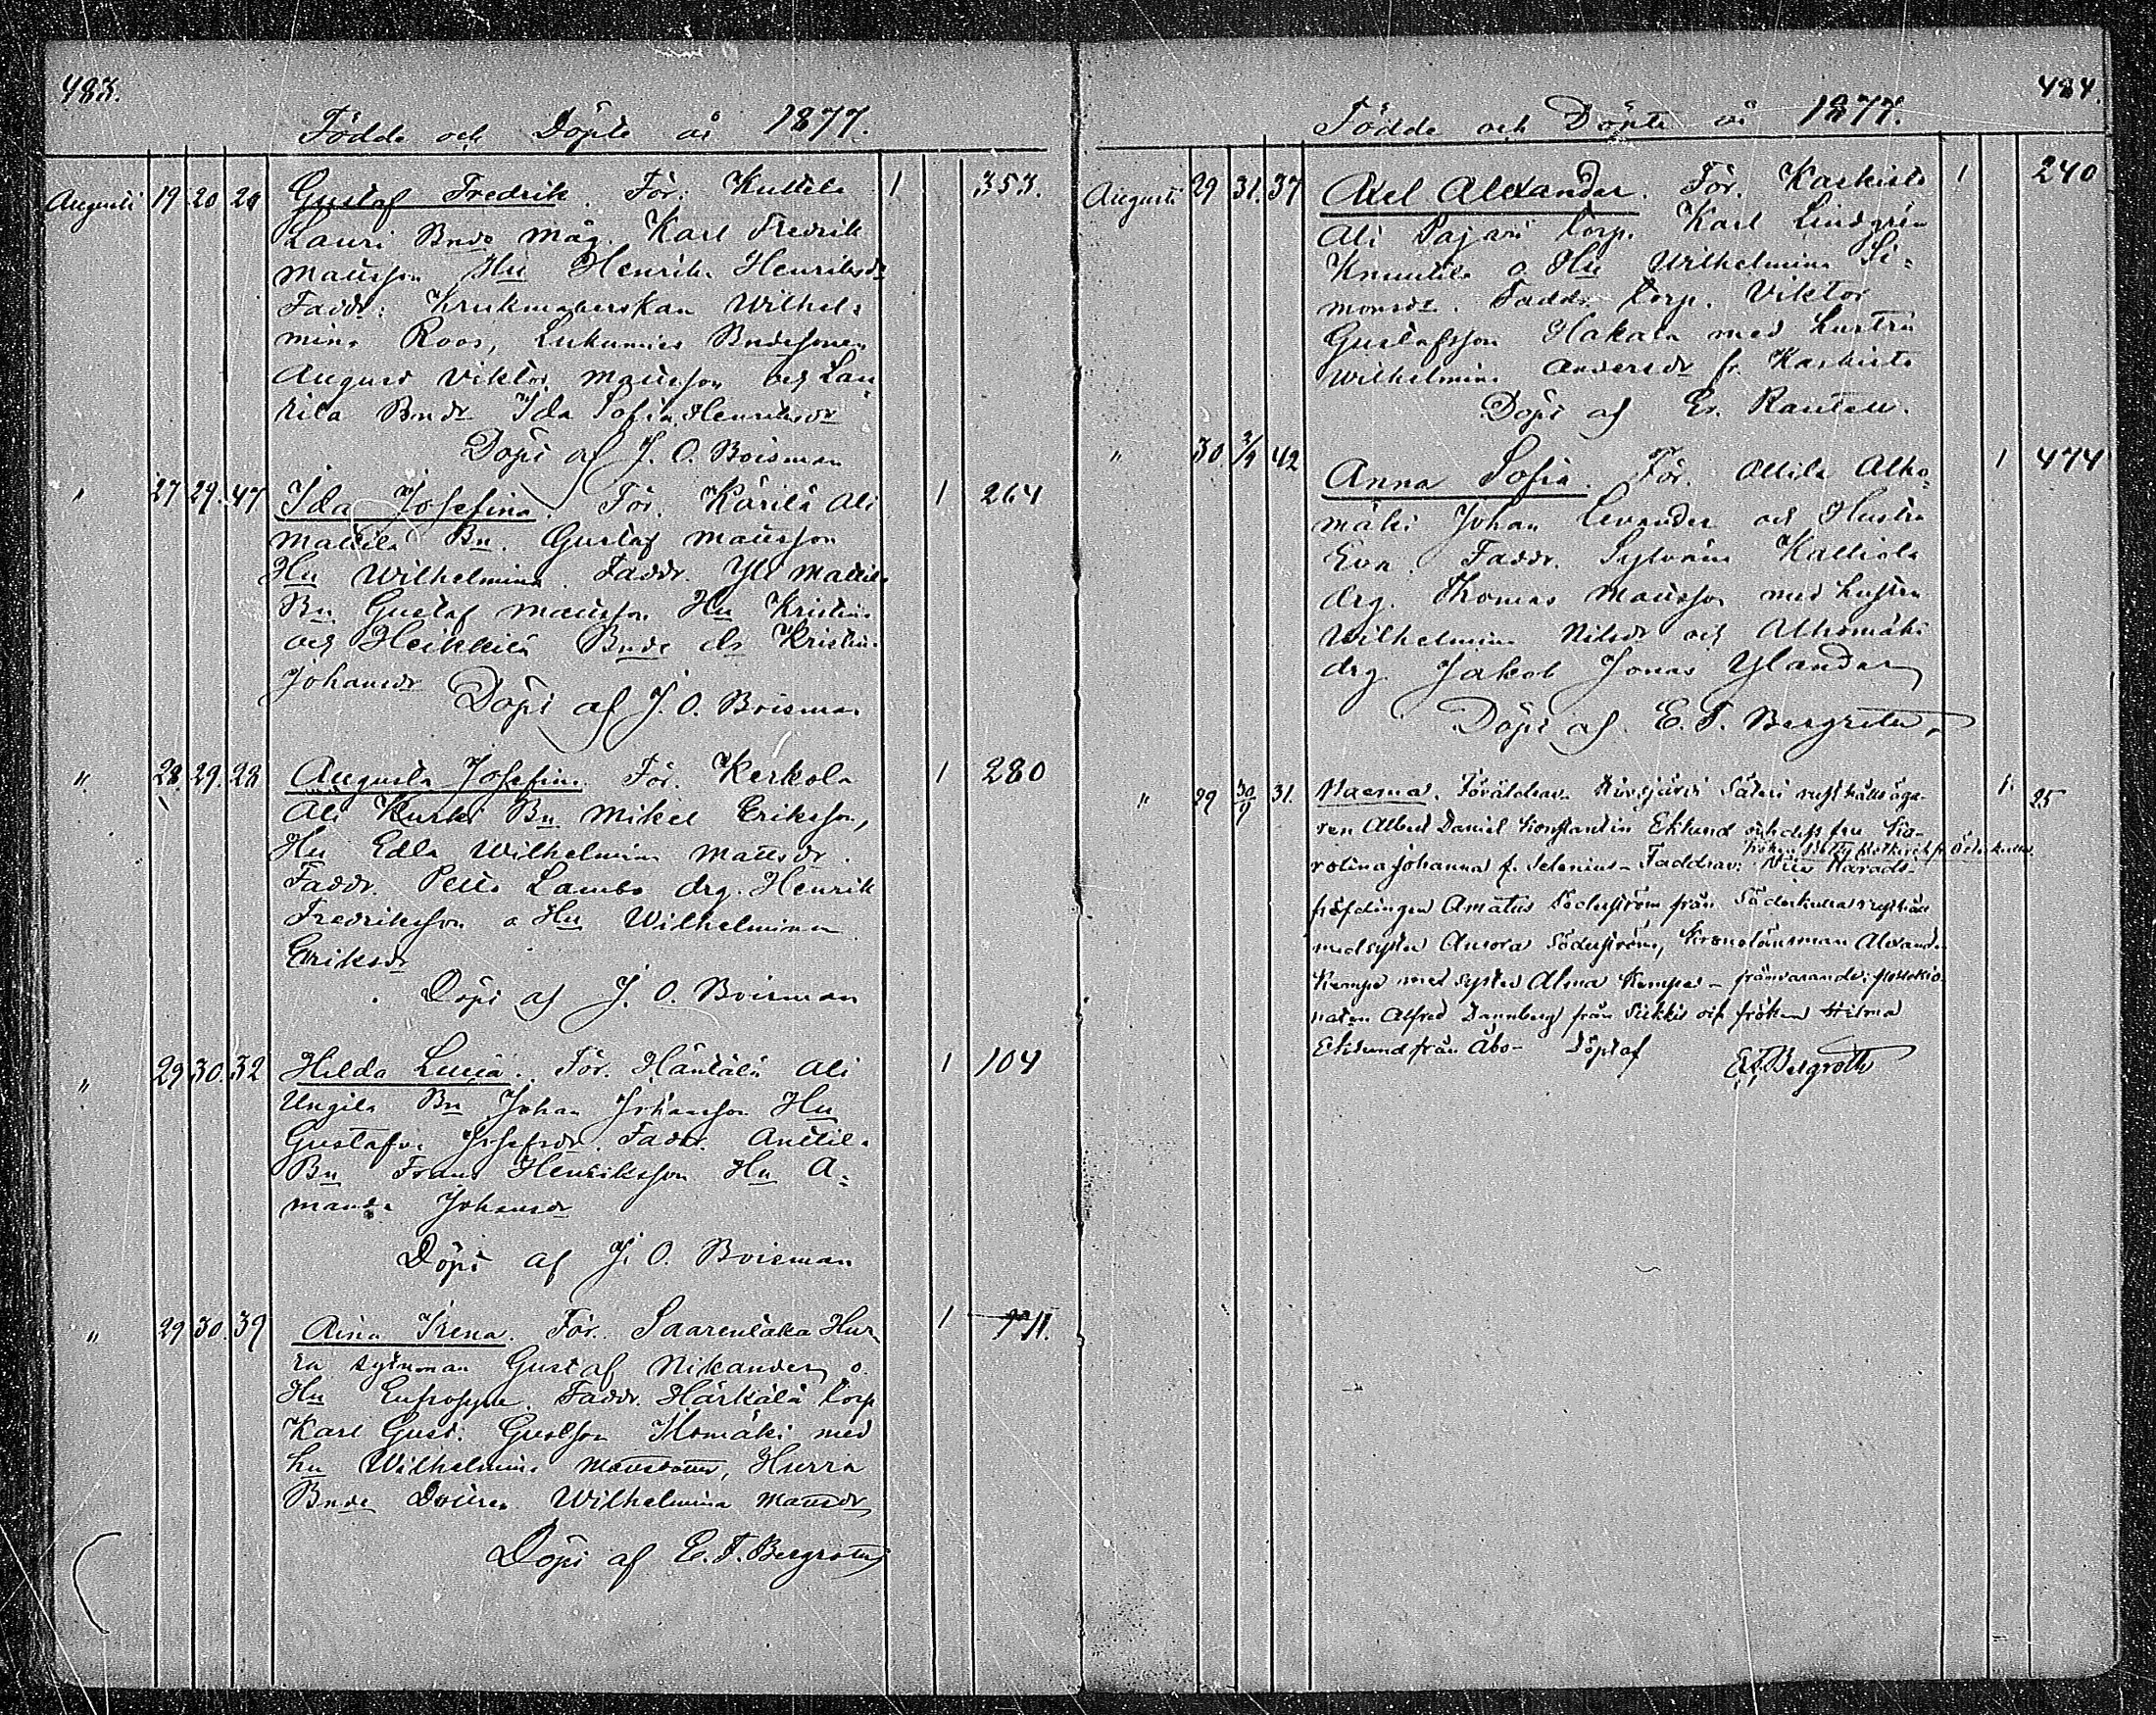 483.
Födde och Döpte år 1877.
Augusti 19 20 20 Gustaf Fredrik. För. Kuttila 1 353.
Lauri Bnde måg. Karl Fredrik
Mattsson Hu Henrika Henriksdr
Faddr: Krukmakerskan Wilhel-
mina Roos, Bndesonen
August Viktor Mattsson och Lau
rila Bndr Ida Sofia Henriksdr
Döpt af J. O. Boisman
" 27 29. 47 Ida Josefina. För. Kärilä Ali 1 264
Mattila Bn. Gustaf Mattsson
Hu Wilhelmina. Faddr. Yli Mattila
Bn Gustaf Mattsson Hu Kristina
och Heikkilä Bnde Kristin.
Johansdr
Döpt af J. O. Boisman
" 28. 29. 28 Augusta Josefina. För. Kerkola 1 280
Ali Kurki Bn Mikel Eriksson,
Hu Edla Wilhelmina Mattsdr.
Faddr. Lambo drg. Henrik
Fredriksson o Hu Wilhelmina
Eriksdr
Döpt af J. O. Boisman
" 29 30. 32 Hilda Lucia. För. Häntälä Ali 1 104
Ungila Bn Johan Johansson Hu
Gustafva Josefsdr. Faddr. Anttila
Bn Frans Henriksson Hu A-
manda Johansdr
Döpt af J. O. Boisman
" 29 30. 39 Aina Irena. För. Saarentaka Hur- 1 711.
ra sytinman Gustaf Nikander o.
Hu Eufrosyne. Faddr. Härkälä torp
Karl Gust. Gustsson Ilomäki med
hu Wilhelmina Mattsdotter, Hurra
Bnde Dotter Wilhelmina Mattsdr
Döpt af E. F. Bergroth
484.
Födde och Döpte år 1877.
Augusti 29 31. 37 Axel Alexander. För. Kaskisto 1 240
Ali Pajari torp. Karl Lindgrén
Knuutila o. Hu Wilhelmina Si-
monsdr. Faddr torp. Viktor
Gustafsson Hakala med hustru
Wilhelmina Andersdr fr. Kaskisto
Döpt af Er. Rautell.
" 30. 2/9 42 Anna Sofia. För. Ollila Alho- 1 474
mäki Johan Levander och Hustru
Eva. Faddr. Sylvän Kalliola
drg. Thomas Mattsson med hustru
Wilhelmina Nilsdr och Alhomäki
drg. Jakob Jonas Ylander
Döpt af E. F. Bergroth.
" 29 30/9 31. Naema. Föräldrar. Hirsjärvi Säteri rusthållsäga- 1. 25
ren Albert Daniel Konstantin Eklund och dess fru Ka-
rolina Johanna f. Selenius - Faddrar: Vice Härads-
höfdingen Amatus Söderström från Söderkulla rusthåll
med syster Aurora Söderström, Kronolänsman Alexander
Kempe med syster Alma Kempe - frånvarande:
Alfred Dannberg från och fröken Hilma
Eklund från Åbo - Döpt af
E. F. Bergroth